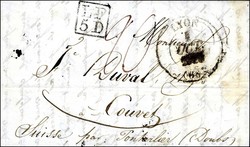 L.F.
5.D
LYON
Monsieur
J. Duval
Couvet
Suisse par Pontarlier (Doubs)